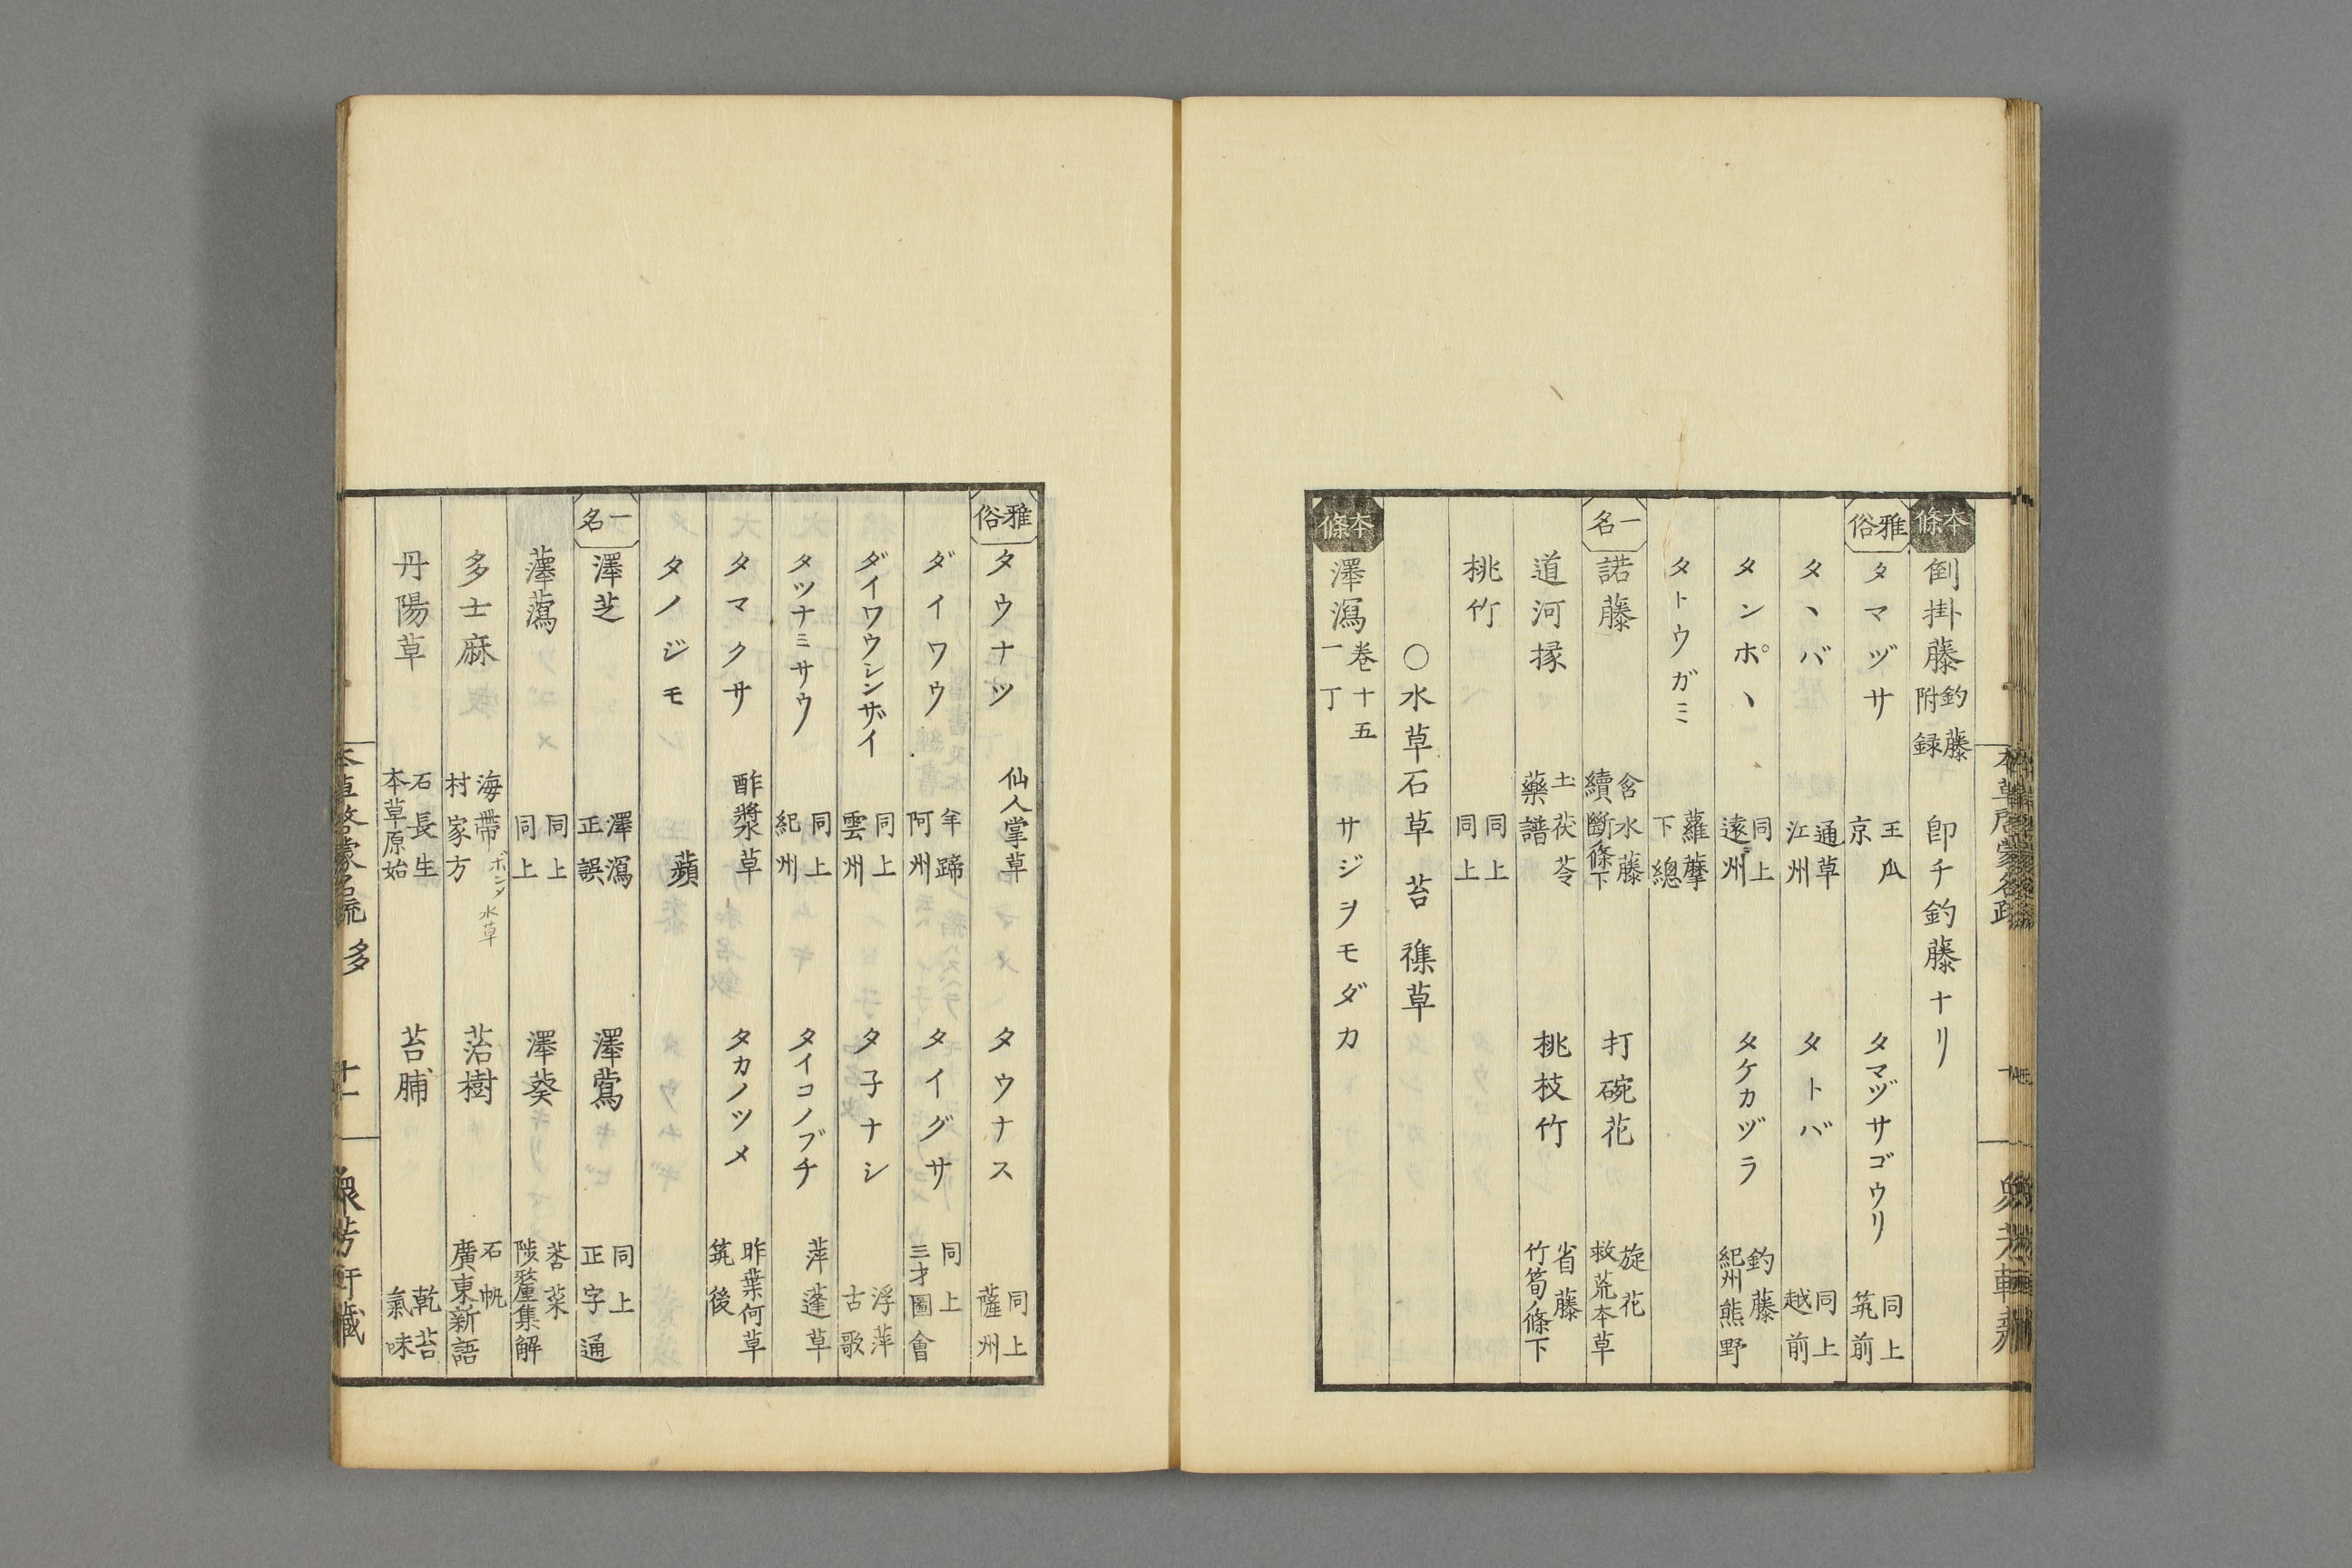 本條 倒掛藤 釣藤附録 卽チ釣藤ナリ
雅俗 タマヅサ 王瓜 京 タマヅサゴウリ 同上 筑前
タヽバ 通草 江州 タトバ 同上 越前
タンポヽ 同上 遠州 タケカヅラ 釣藤 紀州熊野
タトウガミ 蘿藦 下總
一名 諾藤 含水藤 續斷條下 打碗花 旋花 救荒本草
道河掾 土茯苓 藥譜 桃枝竹 省藤 竹筍條下
桃竹 同上 同上
○水草石草 苔 襍草
本條 澤瀉 卷十五 一丁 サジヲモダカ
雅俗 タウナツ 仙人掌草 タウナス 同上 薩州
ダイワウ 羊蹄 阿州 タイグサ 同上 三才圖會
ダイワウシンザイ 同上 雲州 タ子ナシ 浮萍 古歌
タツナミサウ 同上 紀州 タイコノブチ 萍蓬草
タマクサ 酢漿草 タカノツメ 昨葉何草 筑後
タノジモ 蘋
一名 澤芝 澤瀉 正誤 澤蕮 同上 正字通
藫蕮 同上 同上 澤葵 莕菜 陟釐集解
多士麻 海帶 村家方 菭樹 石帆 廣東新語
丹陽草 石長生 本草原始 苔脯 乾苔 氣味
本草啓蒙名疏 多 十一